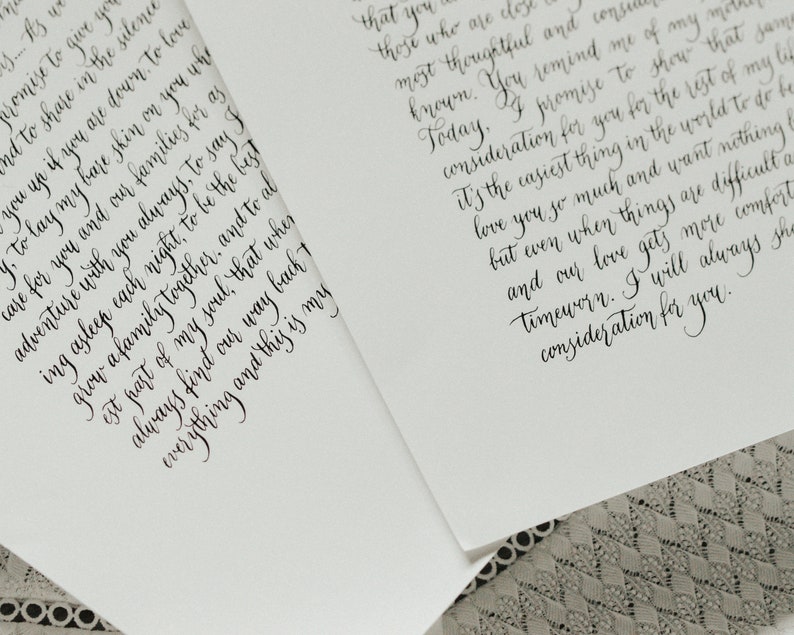 as.... As we
promise to give you
and to share in the silence
you up if you are down, to love
y, to lay my bare skin on you whe
care for you and our families for as
adventure with you always, to say I
ing asleep each night, to be the best
grow a family together, and to al
est part of my soul, that when
always find our way back t
everything and this is my
that you a
those who are close to
most thoughtful and conside
known. You remind me of my mother
Today, I promise to show that same
consideration for you for the rest of my lif
it's the easiest thing in the world to do be
love you so much and want nothing b
but even when things are difficult a
and our love gets more comfort
timeworn. I will always sho
consideration for you.